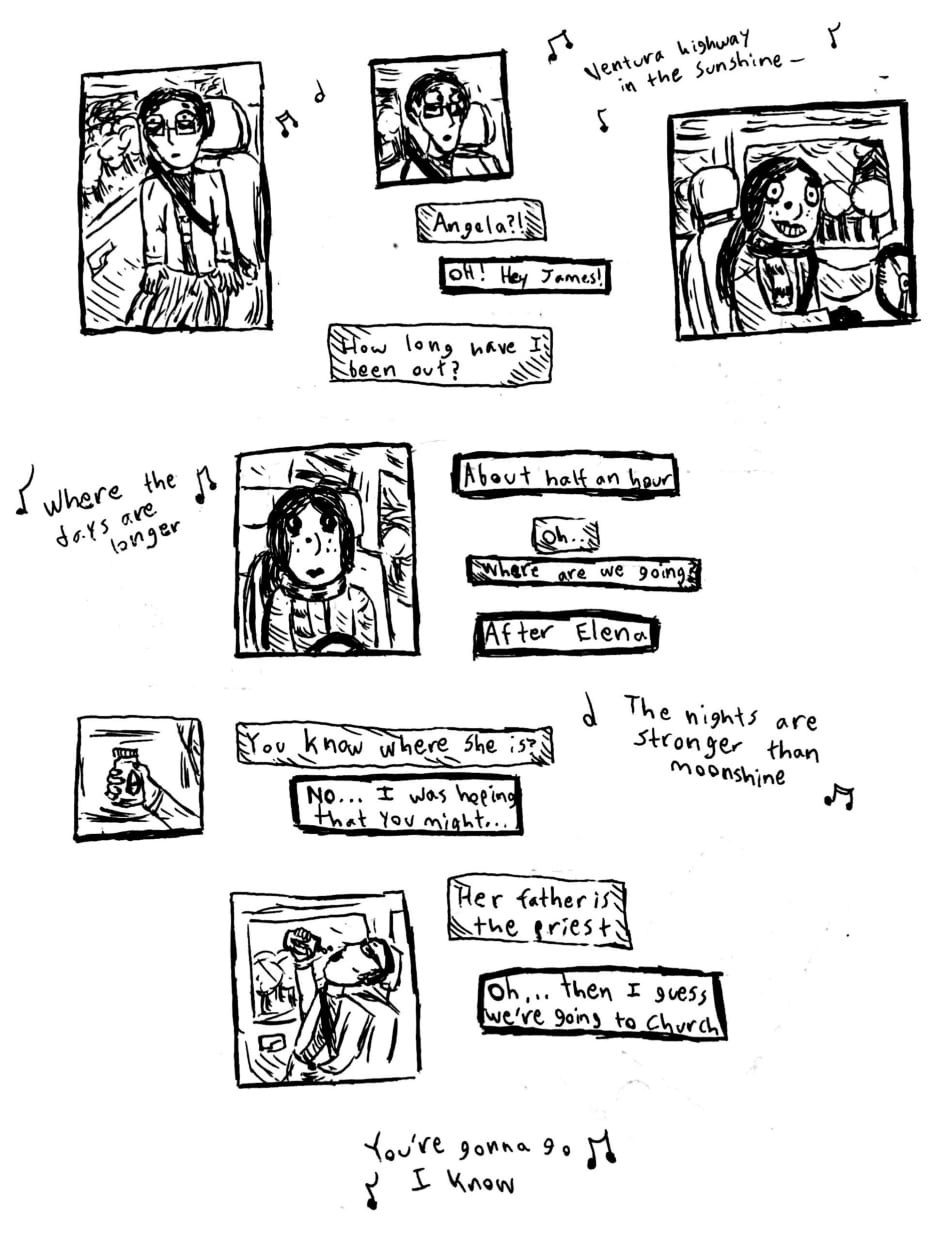 Ventura highway
in the sunshine –
Angela?!
OH! Hey James!
How long have I
been out?
Where the
days are
longer
About half an hour
Oh..
Where are we going?
After Elena
You know where she is?
No... I was hoping
that you might...
The nights are
stronger than
moonshine
Her father is
the priest
Oh... then I guess
we're going to Church
You're gonna go
I know